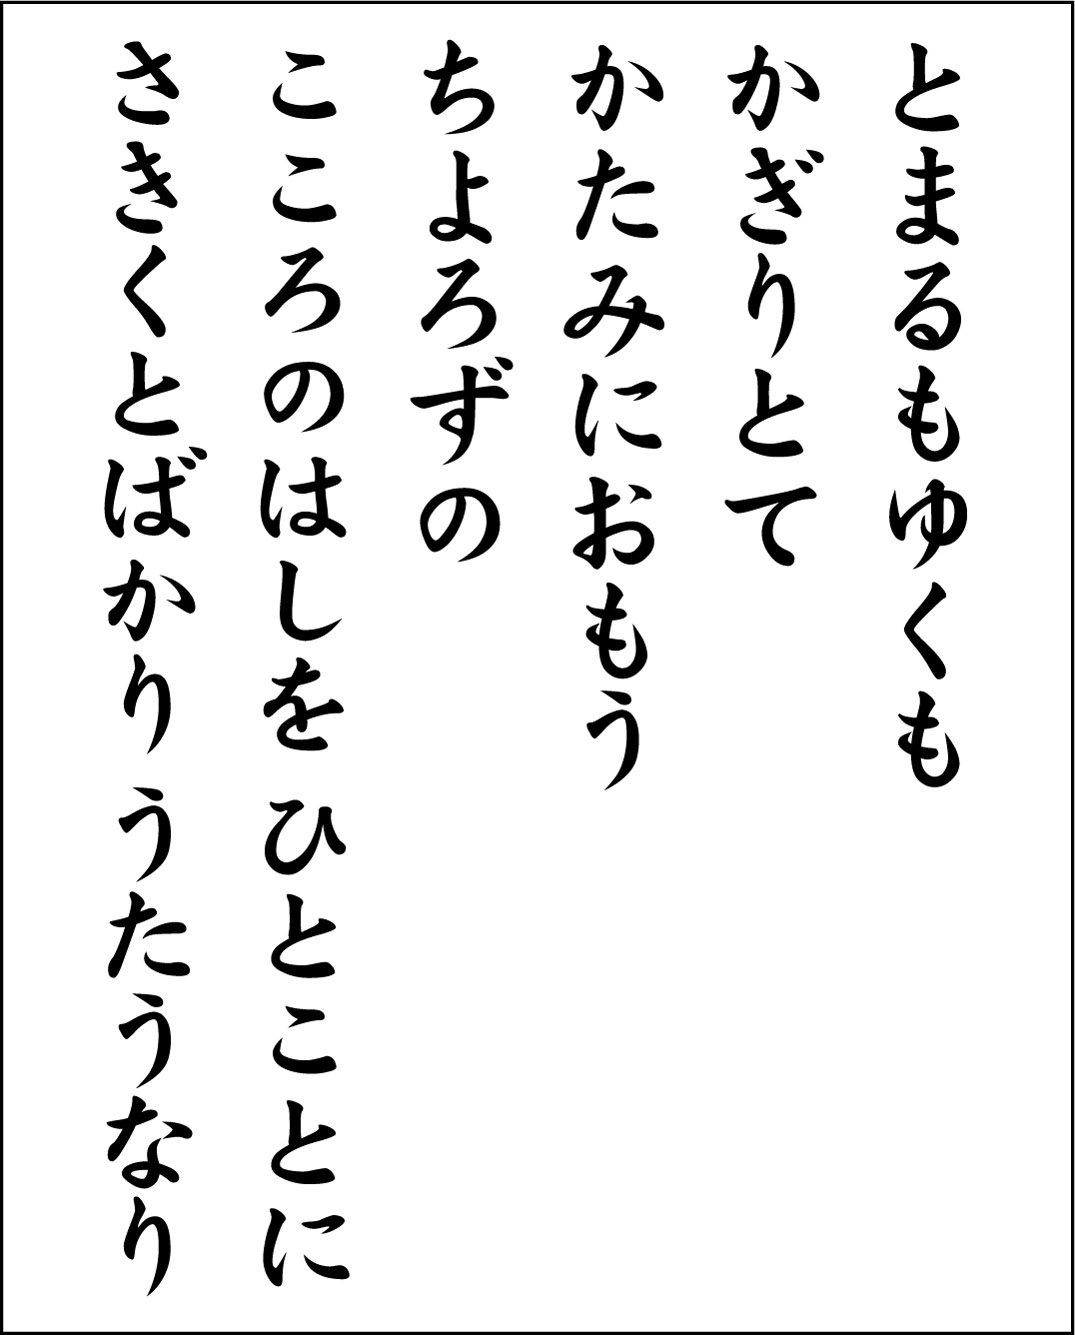 とまるもゆくも
かぎりとて
かたみにおもう
ちよろずの
こころのはしを ひとことに
さきくとばかり うたうなり